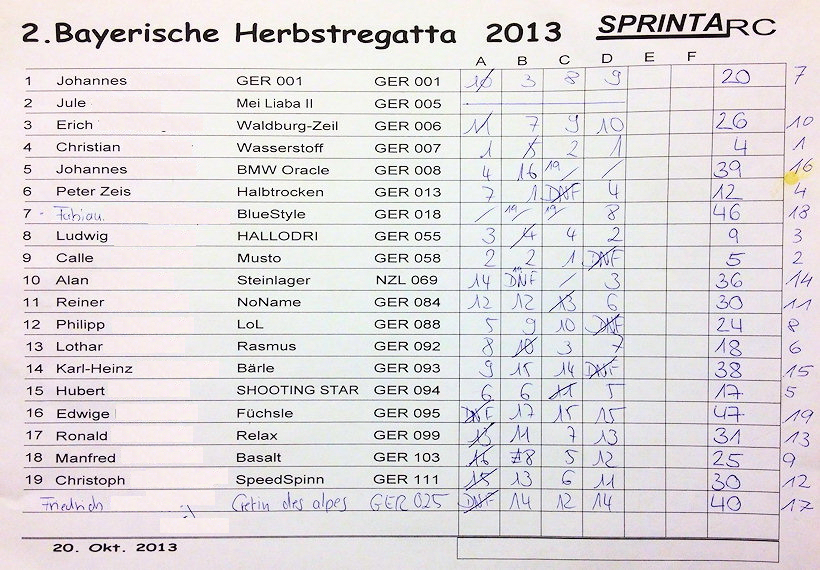 2.Bayerische Herbstregatta 2013 SPRINTARC
A B C D E F
1 Johannes GER 001 GER 001 10 3 8 9 20 7
2 Jule Mei Liaba II GER 005
3 Erich Waldburg-Zeil GER 006 11 7 9 10 26 10
4 Christian Wasserstoff GER 007 1 2 1 4 1
5 Johannes BMW Oracle GER 008 4 16 19 / / 39 16
6 Peter Zeis Halbtrocken GER 013 7 1 DNF 4 12 4
7 - Fabian BlueStyle GER 018 / 19/ 19/ 8 46 18
8 Ludwig HALLODRI GER 055 3 4 4 2 9 3
9 Calle Musto GER 058 2 2 1 DNF 5 2
10 Alan Steinlager NZL 069 14 19 DNF / 3 36 14
11 Reiner NoName GER 084 12 12 13 6 30 11
12 Philipp LoL GER 088 5 9 10 DNF 24 8
13 Lothar Rasmus GER 092 8 10 3 7 18 6
14 Karl-Heinz Bärle GER 093 9 15 14 DNF 38 15
15 Hubert SHOOTING STAR GER 094 6 6 11 5 17 5
16 Edwige Füchsle GER 095 DNF 17 15 15 47 19
17 Ronald Relax GER 099 13 11 7 13 31 13
18 Manfred Basalt GER 103 16 8 5 12 25 9
19 Christoph SpeedSpinn GER 111 15 13 6 11 30 12
Friedrich :) Cretin des alpes GER 025 DNF 14 12 14 40 17
20. Okt. 2013